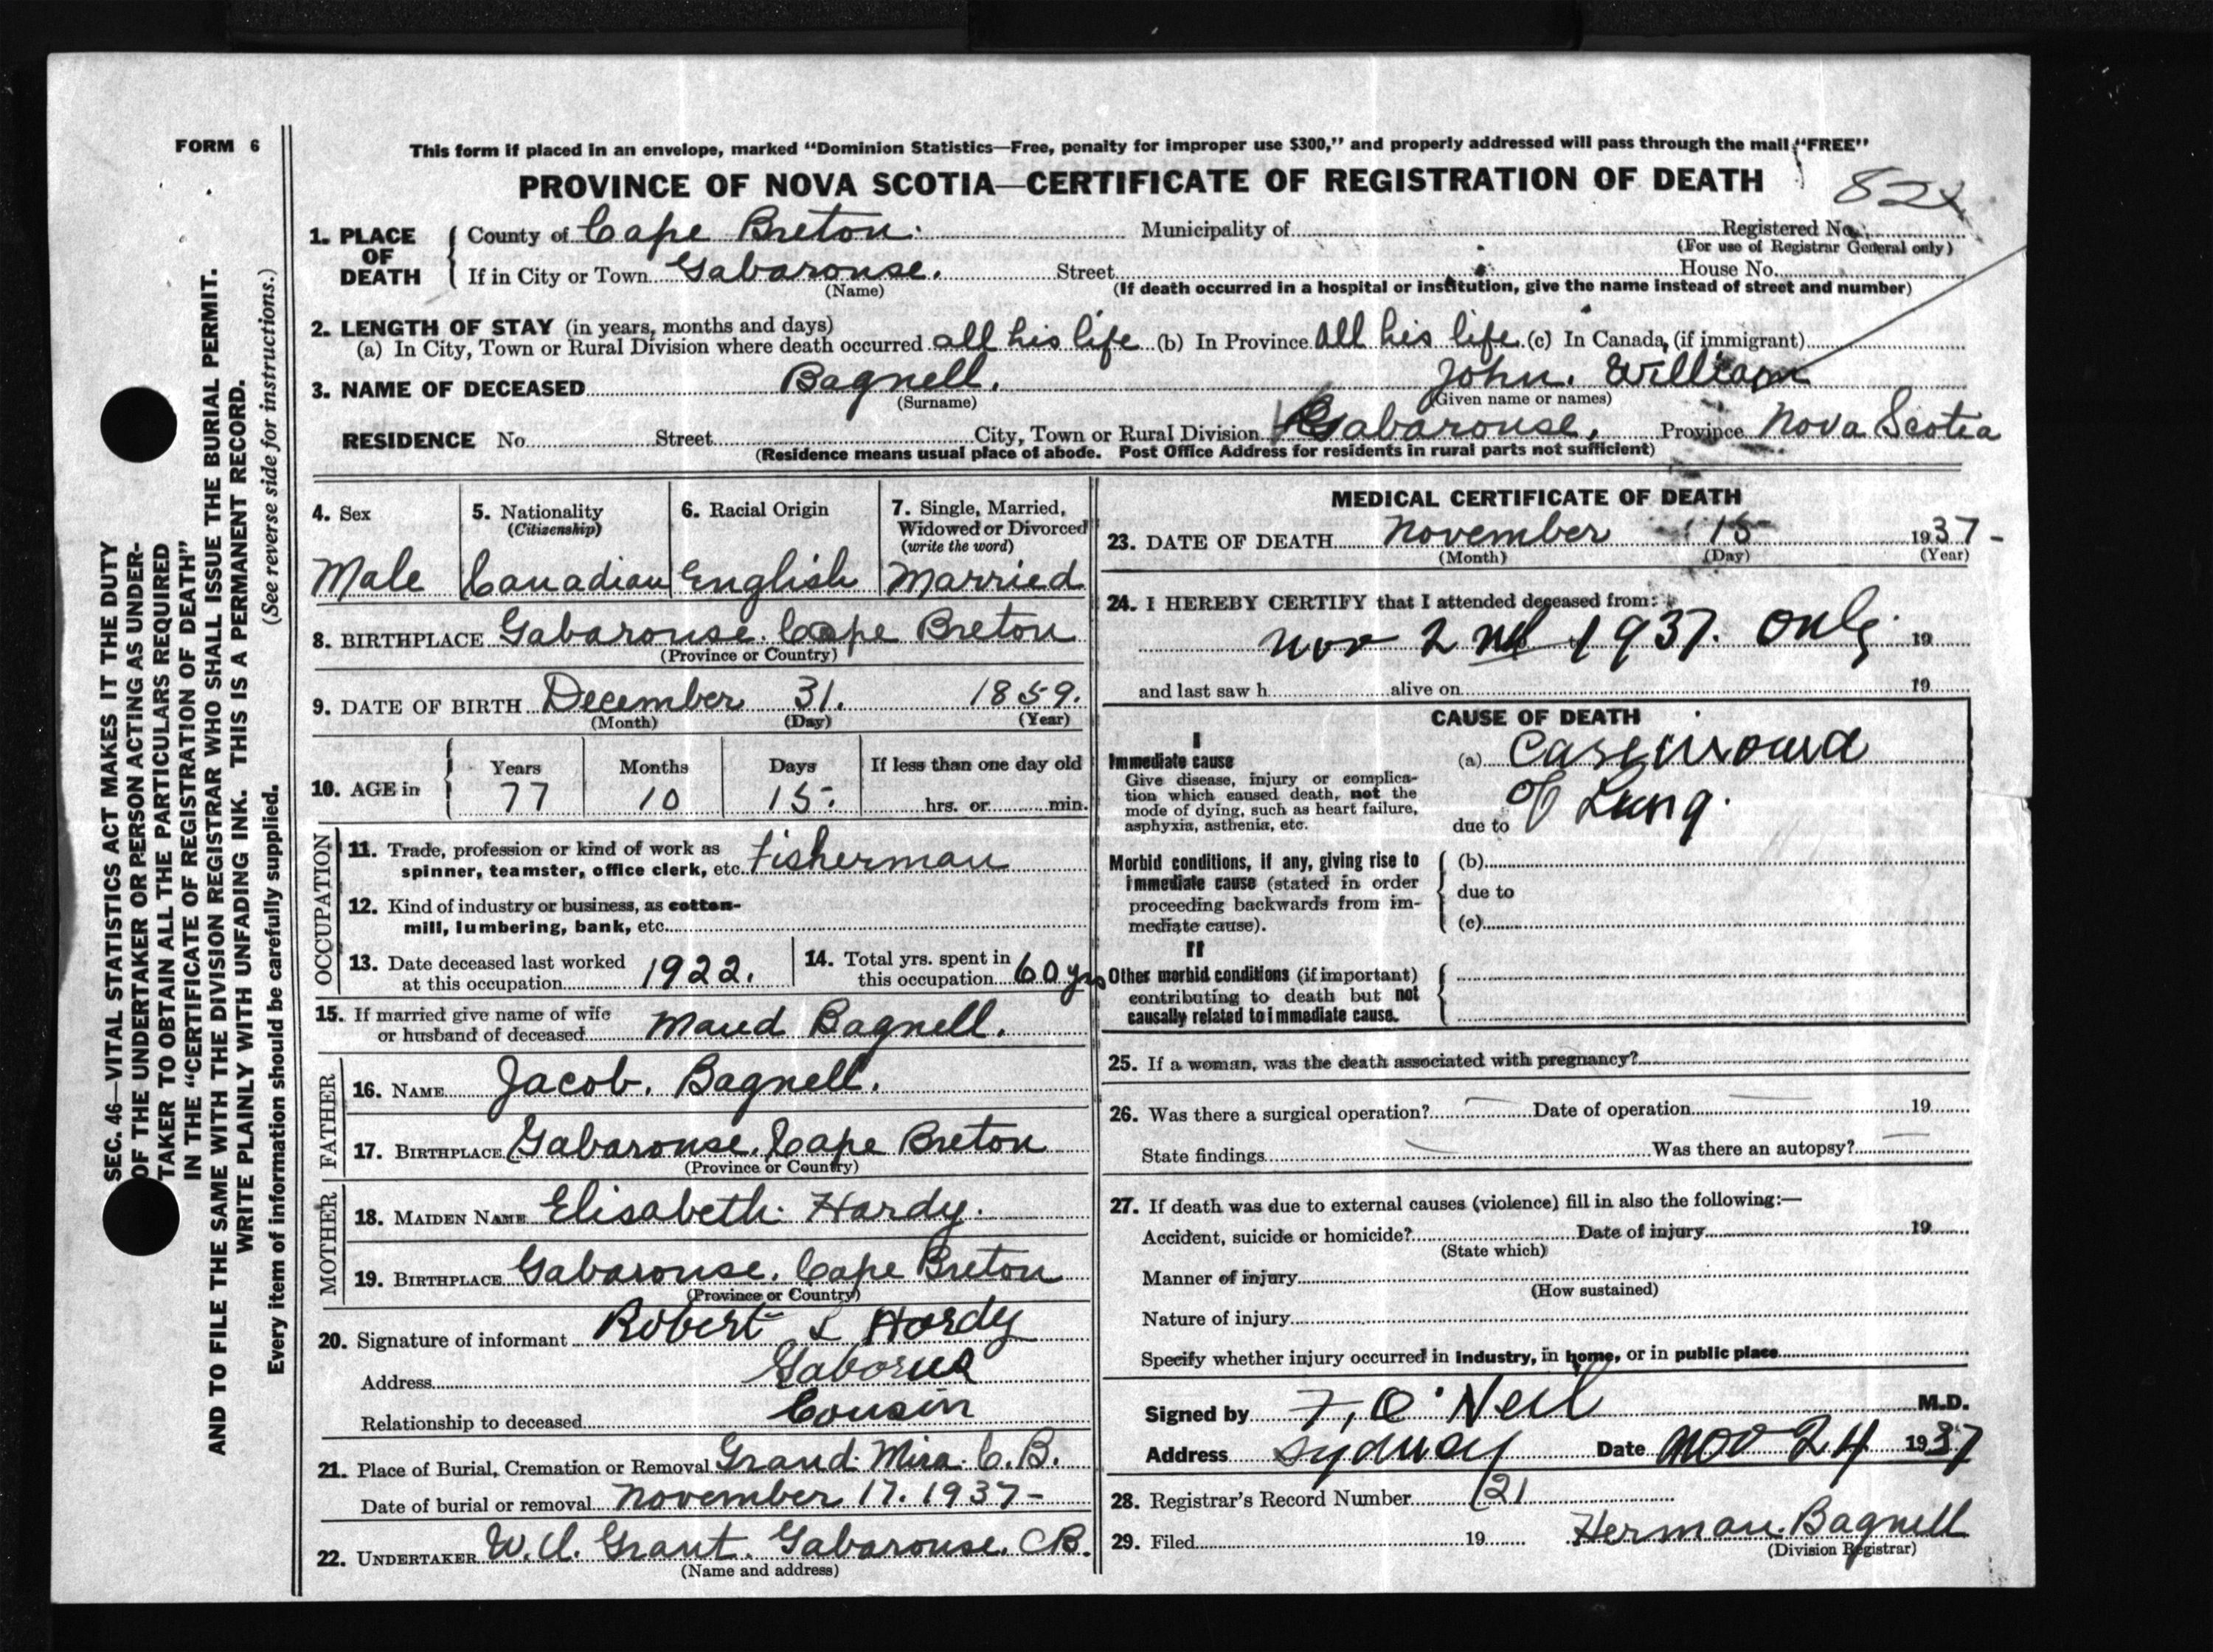 FORM 6
This form if placed in an envelope, marked "Dominion Statistics—Free, penalty for improper use $300," and properly addressed will pass through the mail "FREE"
PROVINCE OF NOVA SCOTIA—CERTIFICATE OF REGISTRATION OF DEATH
1. PLACE OF DEATH County of Cape Breton. Municipality of Registered No.
(For use of Registrar General only)
If in City or Town Gabarouse. Street House No.
(Name) (If death occurred in a hospital or institution, give the name instead of street and number)
2. LENGTH OF STAY (in years, months and days)
(a) In City, Town or Rural Division where death occurred all his life (b) In Province All his life (c) In Canada, (if immigrant)
3. NAME OF DECEASED Bagnell. John. William
(Surname) (Given name or names)
RESIDENCE No. Street City, Town or Rural Division Gabarouse, Province Nova Scotia
(Residence means usual place of abode. Post Office Address for residents in rural parts not sufficient)
4. Sex
Male
5. Nationality
(Citizenship)
Canadian
6. Racial Origin
English
7. Single, Married,
Widowed or Divorced
(write the word)
Married
8. BIRTHPLACE Gabarouse. Cape Breton
(Province or Country)
9. DATE OF BIRTH December 31. 1859.
(Month) (Day) (Year)
10. AGE in Years Months Days If less than one day old
77 10 15. hrs. or min.
OCCUPATION
11. Trade, profession or kind of work as
spinner, teamster, office clerk, etc. fisherman
12. Kind of industry or business, as cotton-
mill, lumbering, bank, etc.
13. Date deceased last worked
at this occupation 1922.
14. Total yrs. spent in
this occupation 60 yrs
15. If married give name of wife
or husband of deceased Maud Bagnell.
FATHER
16. NAME Jacob. Bagnell.
17. BIRTHPLACE Gabarouse. Cape Breton
(Province or Country)
MOTHER
18. MAIDEN NAME Elisabeth. Hardy.
19. BIRTHPLACE Gabarouse. Cape Breton
(Province or Country)
20. Signature of informant Robert L Hardy
Address Gaborus
Relationship to deceased Cousin
21. Place of Burial, Cremation or Removal Grand. Mira. C.B.
Date of burial or removal November 17. 1937-
22. UNDERTAKER Grant. Gabarouse. CB.
(Name and address)
MEDICAL CERTIFICATE OF DEATH
23. DATE OF DEATH November 15 1937-
(Month) (Day) (Year)
24. I HEREBY CERTIFY that I attended deceased from:
Nov 2nd 1937. only 19
and last saw h alive on 19
CAUSE OF DEATH
I
Immediate cause
Give disease, injury or complica-
tion which caused death, not the
mode of dying, such as heart failure,
asphyxia, asthenia, etc.
(a) Carcinoma
due to of Lung.
Morbid conditions, if any, giving rise to
immediate cause (stated in order
proceeding backwards from im-
mediate cause).
(b)
due to
(c)
II
Other morbid conditions (if important)
contributing to death but not
causally related to immediate cause.
25. If a woman, was the death associated with pregnancy?
26. Was there a surgical operation? Date of operation 19
State findings Was there an autopsy?
27. If death was due to external causes (violence) fill in also the following:—
Accident, suicide or homicide? Date of injury 19
(State which)
Manner of injury
(How sustained)
Nature of injury
Specify whether injury occurred in industry, in home, or in public place
Signed by F. O'Neil M.D.
Address Sydney Date Nov 24 1937
28. Registrar's Record Number 121
29. Filed 19 Herman. Bagnell
(Division Registrar)
SEC. 46—VITAL STATISTICS ACT MAKES IT THE DUTY
OF THE UNDERTAKER OR PERSON ACTING AS UNDER-
TAKER TO OBTAIN ALL THE PARTICULARS REQUIRED
IN THE "CERTIFICATE OF REGISTRATION OF DEATH"
AND TO FILE THE SAME WITH THE DIVISION REGISTRAR WHO SHALL ISSUE THE BURIAL PERMIT.
WRITE PLAINLY WITH UNFADING INK. THIS IS A PERMANENT RECORD.
Every item of information should be carefully supplied. (See reverse side for instructions.)